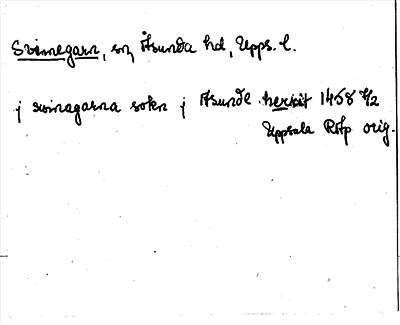 Svinnegarn, sn, Åsunda hd, Upps. l.
j swinagarna sokn j Asunde herat 1458 4/2
Uppsala Råp orig.